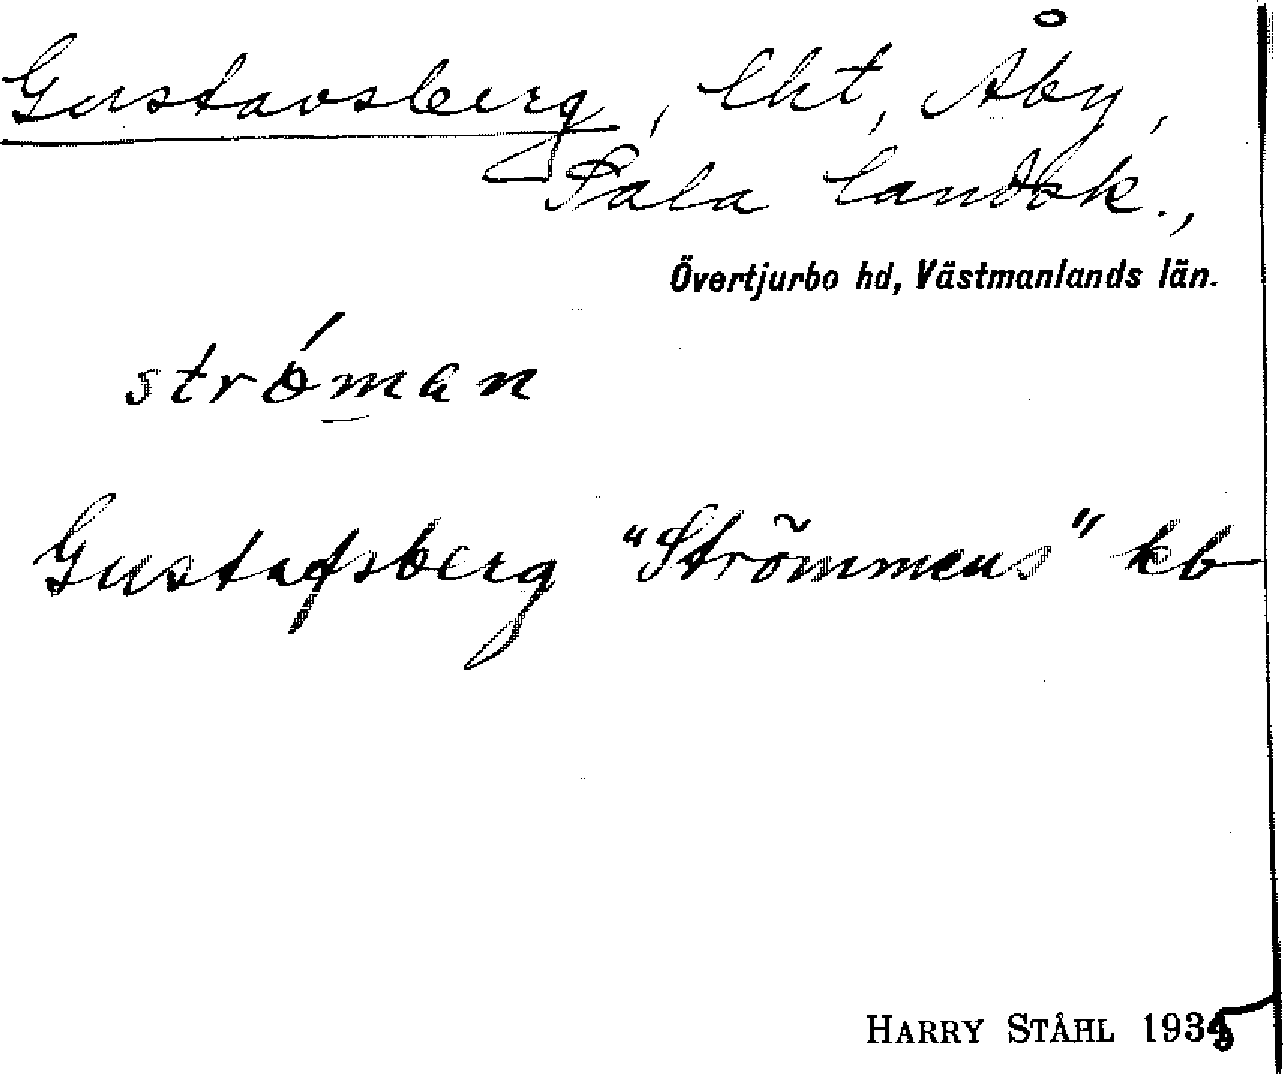 Gustavsberg, lht, Åby,
Sala landsk.,
Övertjurbo hd, Västmanlands län.
stróman
Gustafsberg "Strömmens" kb
HARRY STÅHL 1935